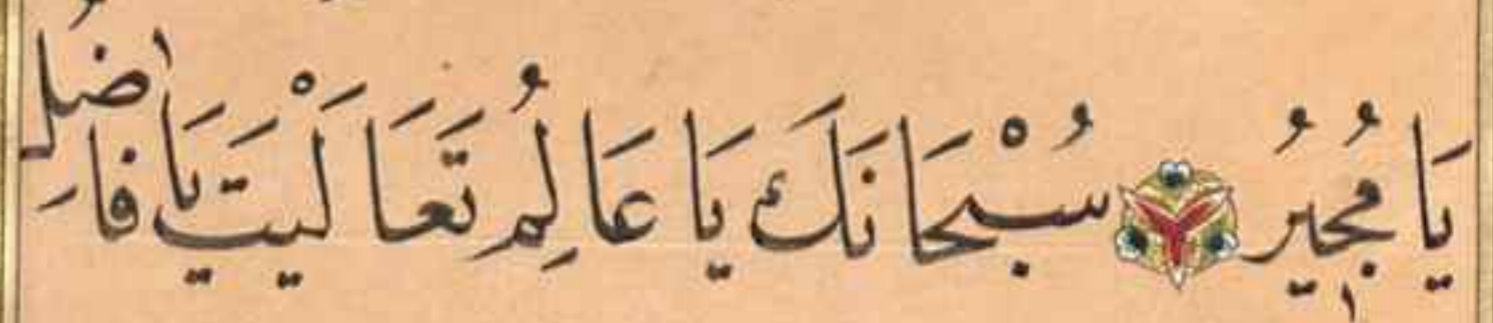 يَا مُجِيرُ سُبْحَانَكَ يَا عَالِمُ تَعَالَيْتَ يَا فَاضِلُ